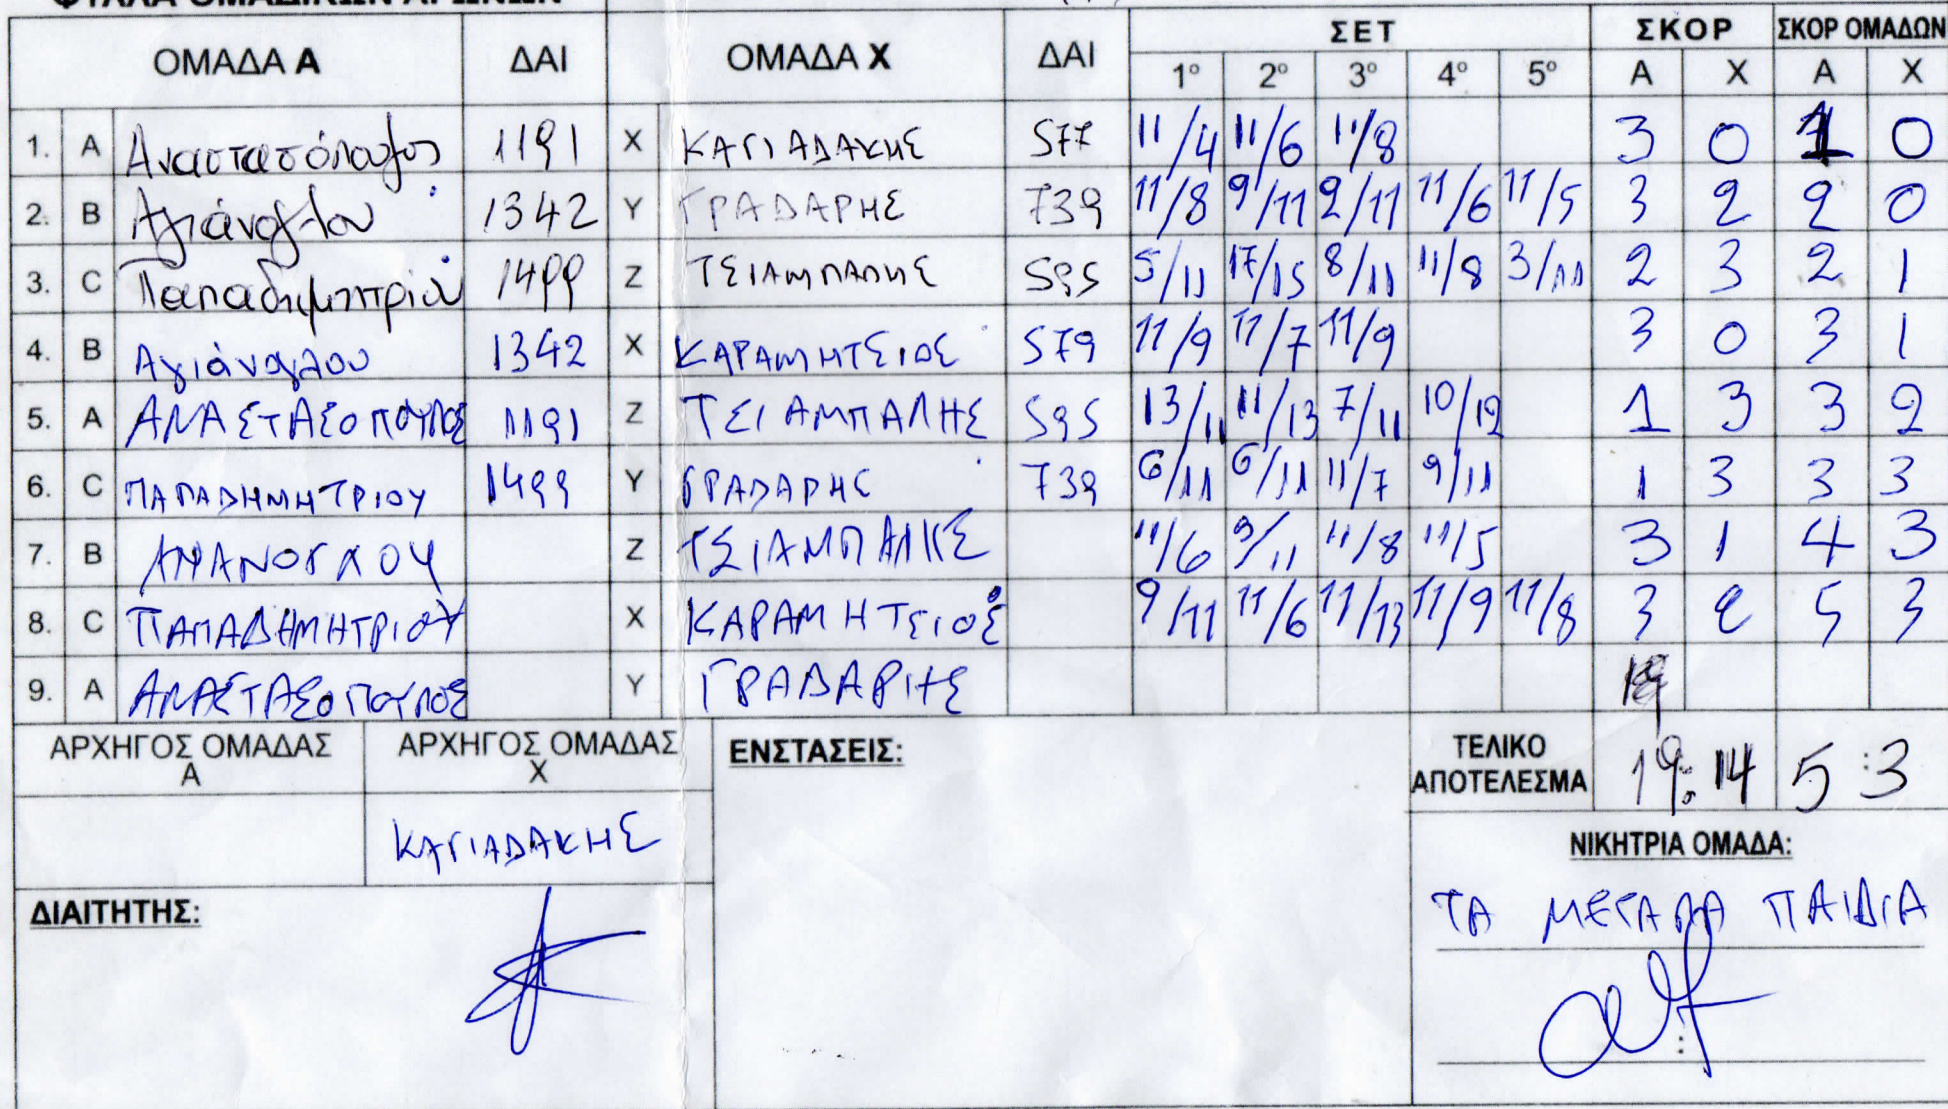 ΦΥΛΛΑ ΟΜΑΔΙΚΩΝ ΑΓΩΝΩΝ
ΟΜΑΔΑ Α ΔΑΙ ΟΜΑΔΑ Χ ΔΑΙ ΣΕΤ ΣΚΟΡ ΣΚΟΡ ΟΜΑΔΩΝ
1° 2° 3° 4° 5° Α Χ Α Χ
1. A Αναστασόπουλος 1191 X ΚΑΓΙΑΔΑΚΗΣ 577 11/4 11/6 11/8 3 0 1 0
2. B Αγιάνογλου 1342 Y ΓΡΑΔΑΡΗΣ 739 11/8 9/11 9/11 11/6 11/5 3 2 2 0
3. C Παπαδημητρίου 1499 Z ΤΣΙΑΜΠΑΛΗΣ 595 5/11 17/15 8/11 11/8 3/11 2 3 2 1
4. B Αγιάνογλου 1342 X ΚΑΡΑΜΗΤΣΙΟΣ 579 11/9 11/7 11/9 3 0 3 1
5. A ΑΝΑΣΤΑΣΟΠΟΥΛΟΣ 1191 Z ΤΣΙΑΜΠΑΛΗΣ 595 13/11 11/13 7/11 10/12 1 3 3 2
6. C ΠΑΠΑΔΗΜΗΤΡΙΟΥ 1499 Y ΓΡΑΔΑΡΗΣ 739 6/11 6/11 11/7 9/11 1 3 3 3
7. B Z ΤΣΙΑΜΠΑΛΗΣ 11/6 9/11 11/8 11/5 3 1 4 3
8. C ΠΑΠΑΔΗΜΗΤΡΙΟΥ X ΚΑΡΑΜΗΤΣΙΟΣ 9/11 11/6 11/13 11/9 11/8 3 2 5 3
9. A ΑΝΑΣΤΑΣΟΠΟΥΛΟΣ Y ΓΡΑΔΑΡΗΣ
ΑΡΧΗΓΟΣ ΟΜΑΔΑΣ Α ΑΡΧΗΓΟΣ ΟΜΑΔΑΣ Χ ΕΝΣΤΑΣΕΙΣ: ΤΕΛΙΚΟ ΑΠΟΤΕΛΕΣΜΑ 19:14 5:3
ΚΑΓΙΑΔΑΚΗΣ
ΝΙΚΗΤΡΙΑ ΟΜΑΔΑ:
ΤΑ ΜΕΓΑΛΑ ΠΑΙΔΙΑ
ΔΙΑΙΤΗΤΗΣ: